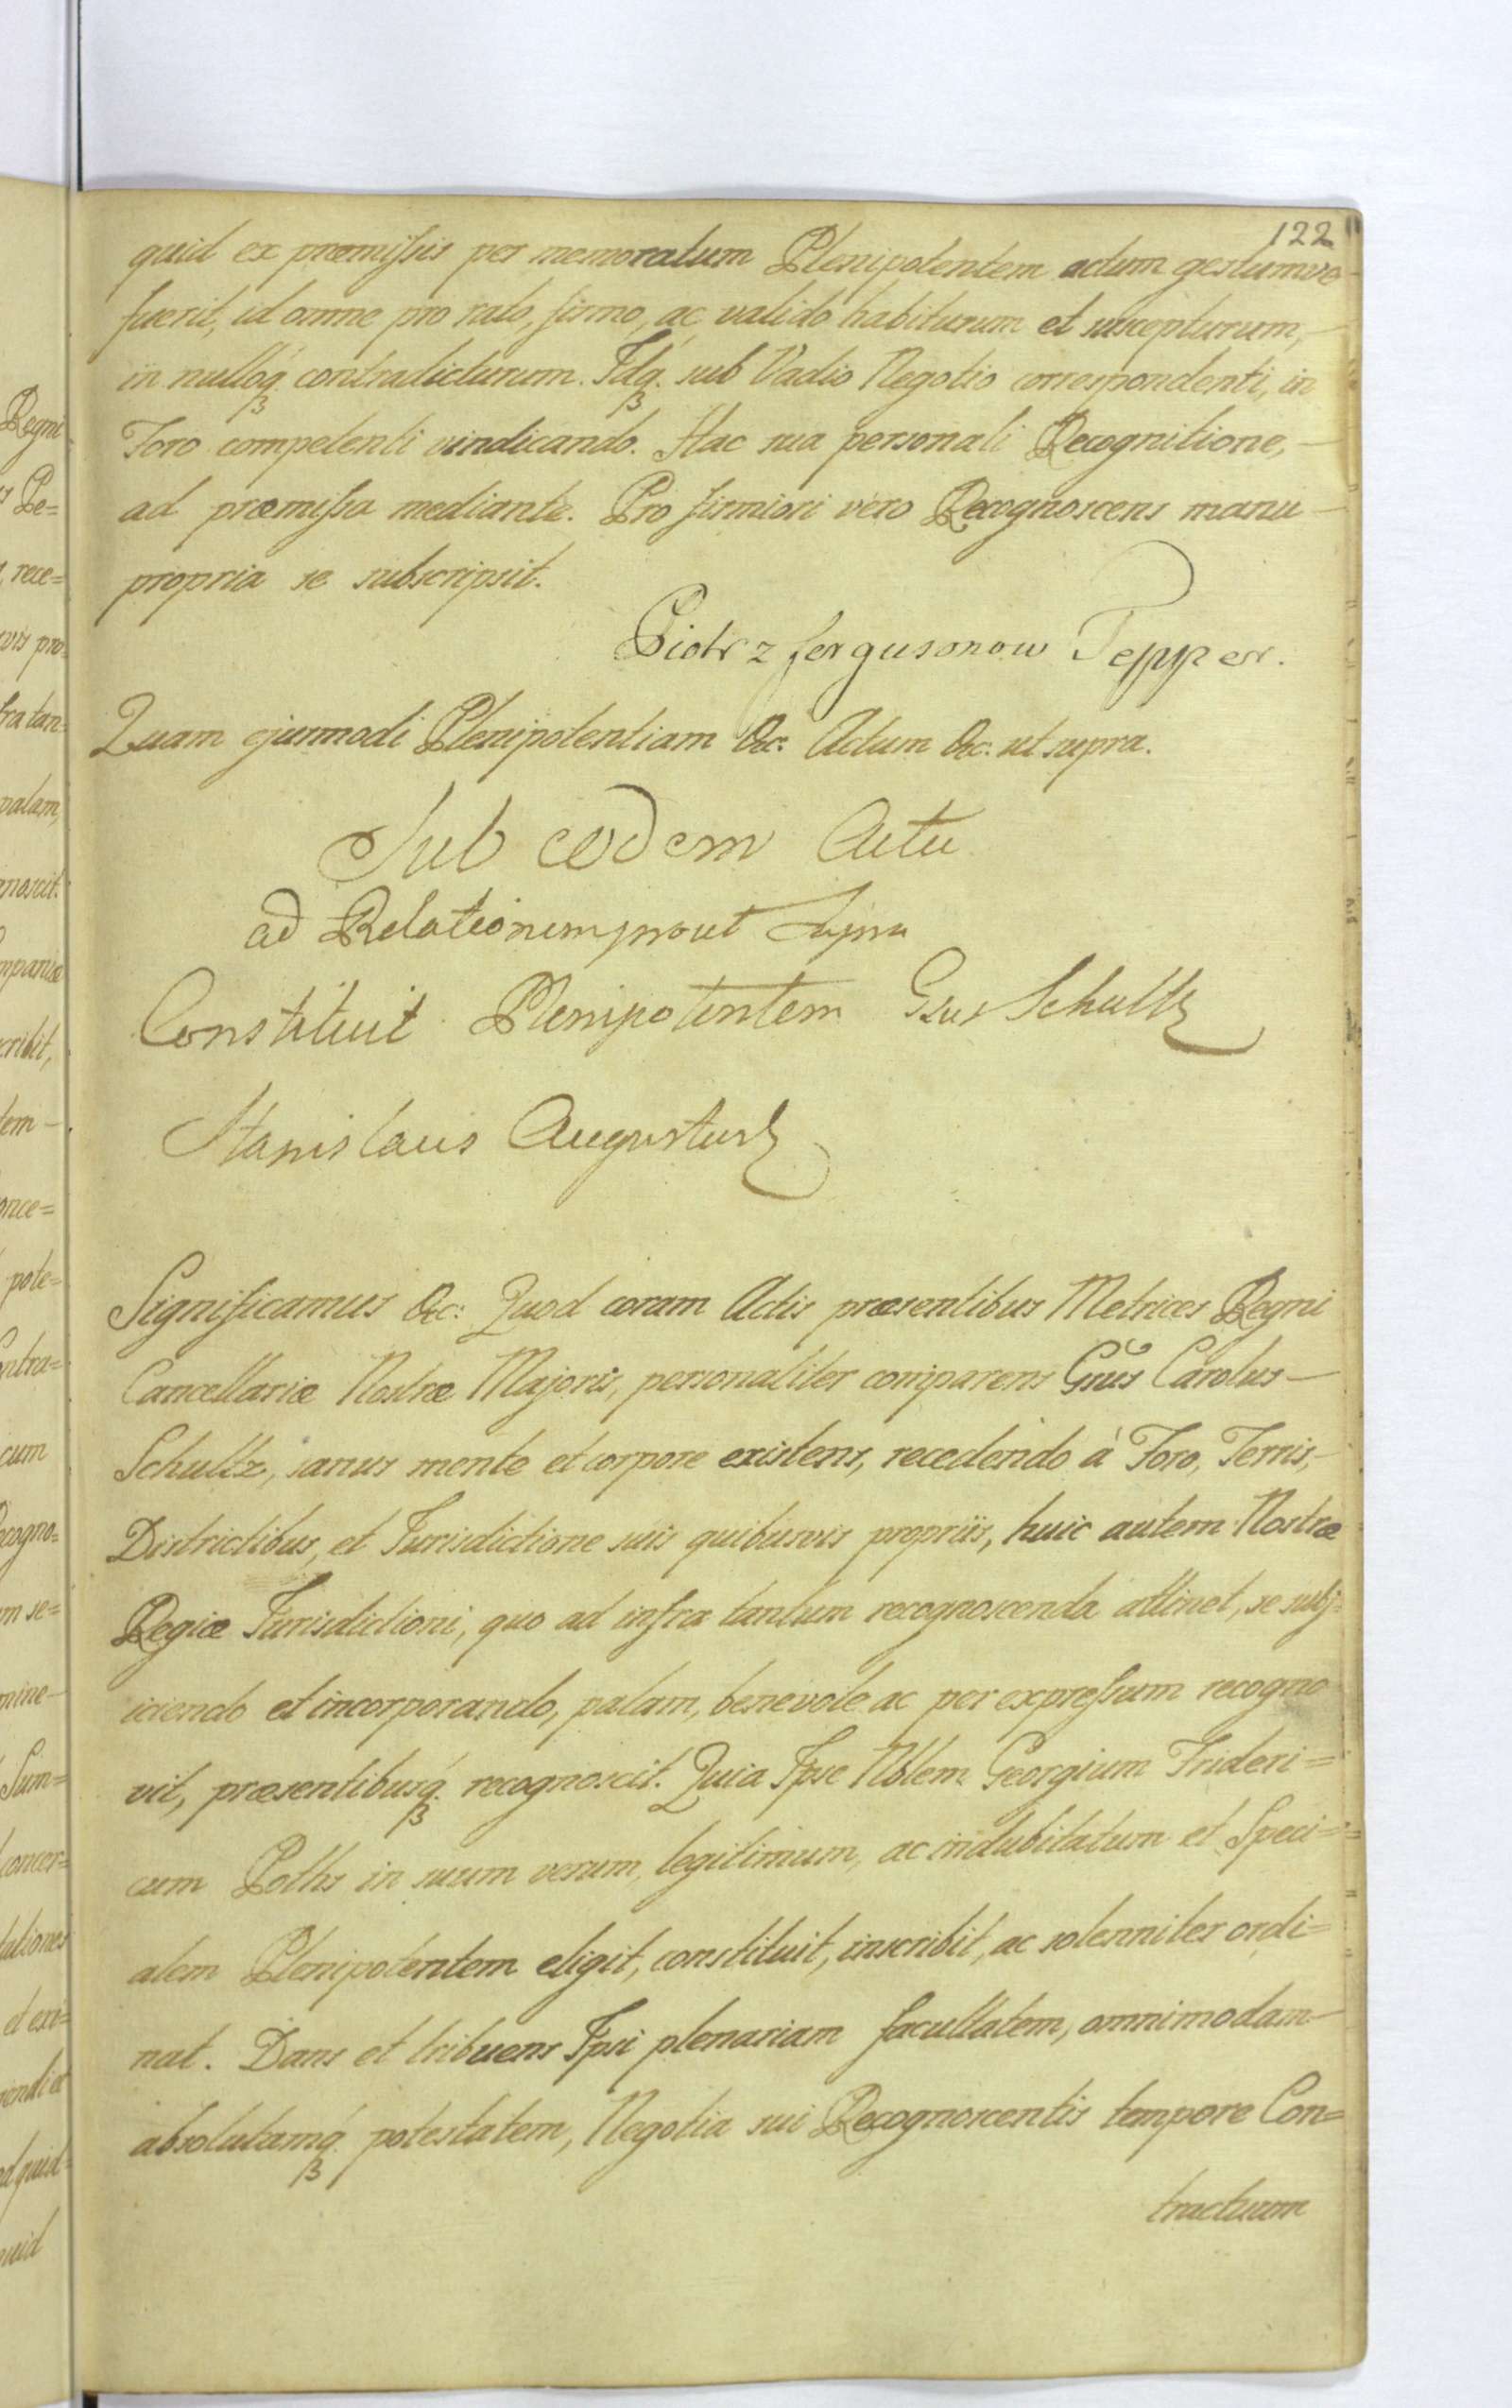 122
quid ex præmissis per memoratum Plenipotentem actum gestumve
fuerit, id omne pro rato, firmo, ac valido habiturum et suscepturum,
in nulloq́ꝫ contradicturum. Idq́ꝫ sub Vadio Negotio correspondenti, in
Foro competenti vindicando. Hac sua personali Recognitione,
ad præmissa mediante. Pro firmiori vero Recognoscens manu
propria se subscripsit.
Piotr z fergusonow Tepper.
Quam ejusmodi Plenipotentiam &c: Actum &c: ut supra.
Sub eodem Actu
ad Relationem prout supra
Constituit Plenipotentem Gsus Schultz
Stanislaus Augustus
Significamus &c: Quod coram Actis præsentibus Metrices Regni
Cancellariæ Nostræ Majoris, personaliter comparens Gsus Carolus
Schultz, sanus mente et corpore existens, recedendo à Foro, Terris,
Districtibus, et Jurisdictione suis quibusvis propriis, huic autem Nostræ
Regiæ Jurisdictioni, quo ad infra tantum recognoscenda attinet, se subj=
iciendo et incorporando, palam, benevole ac per expressum recogno
vit, præsentibusq́ꝫ recognoscit. Quia Ipse Nblem Georgium Frideri=
cum Poths in suum verum, legitimum, ac indubitatum et Speci=
alem Plenipotentem eligit, constituit, inscribit, ac solenniter ordi=
nat. Dans et tribuens Ipsi plenariam facultatem, omnimodam
absolutamq́ꝫ potestatem, Negotia sui Recognoscentis tempore Con=
tractuum